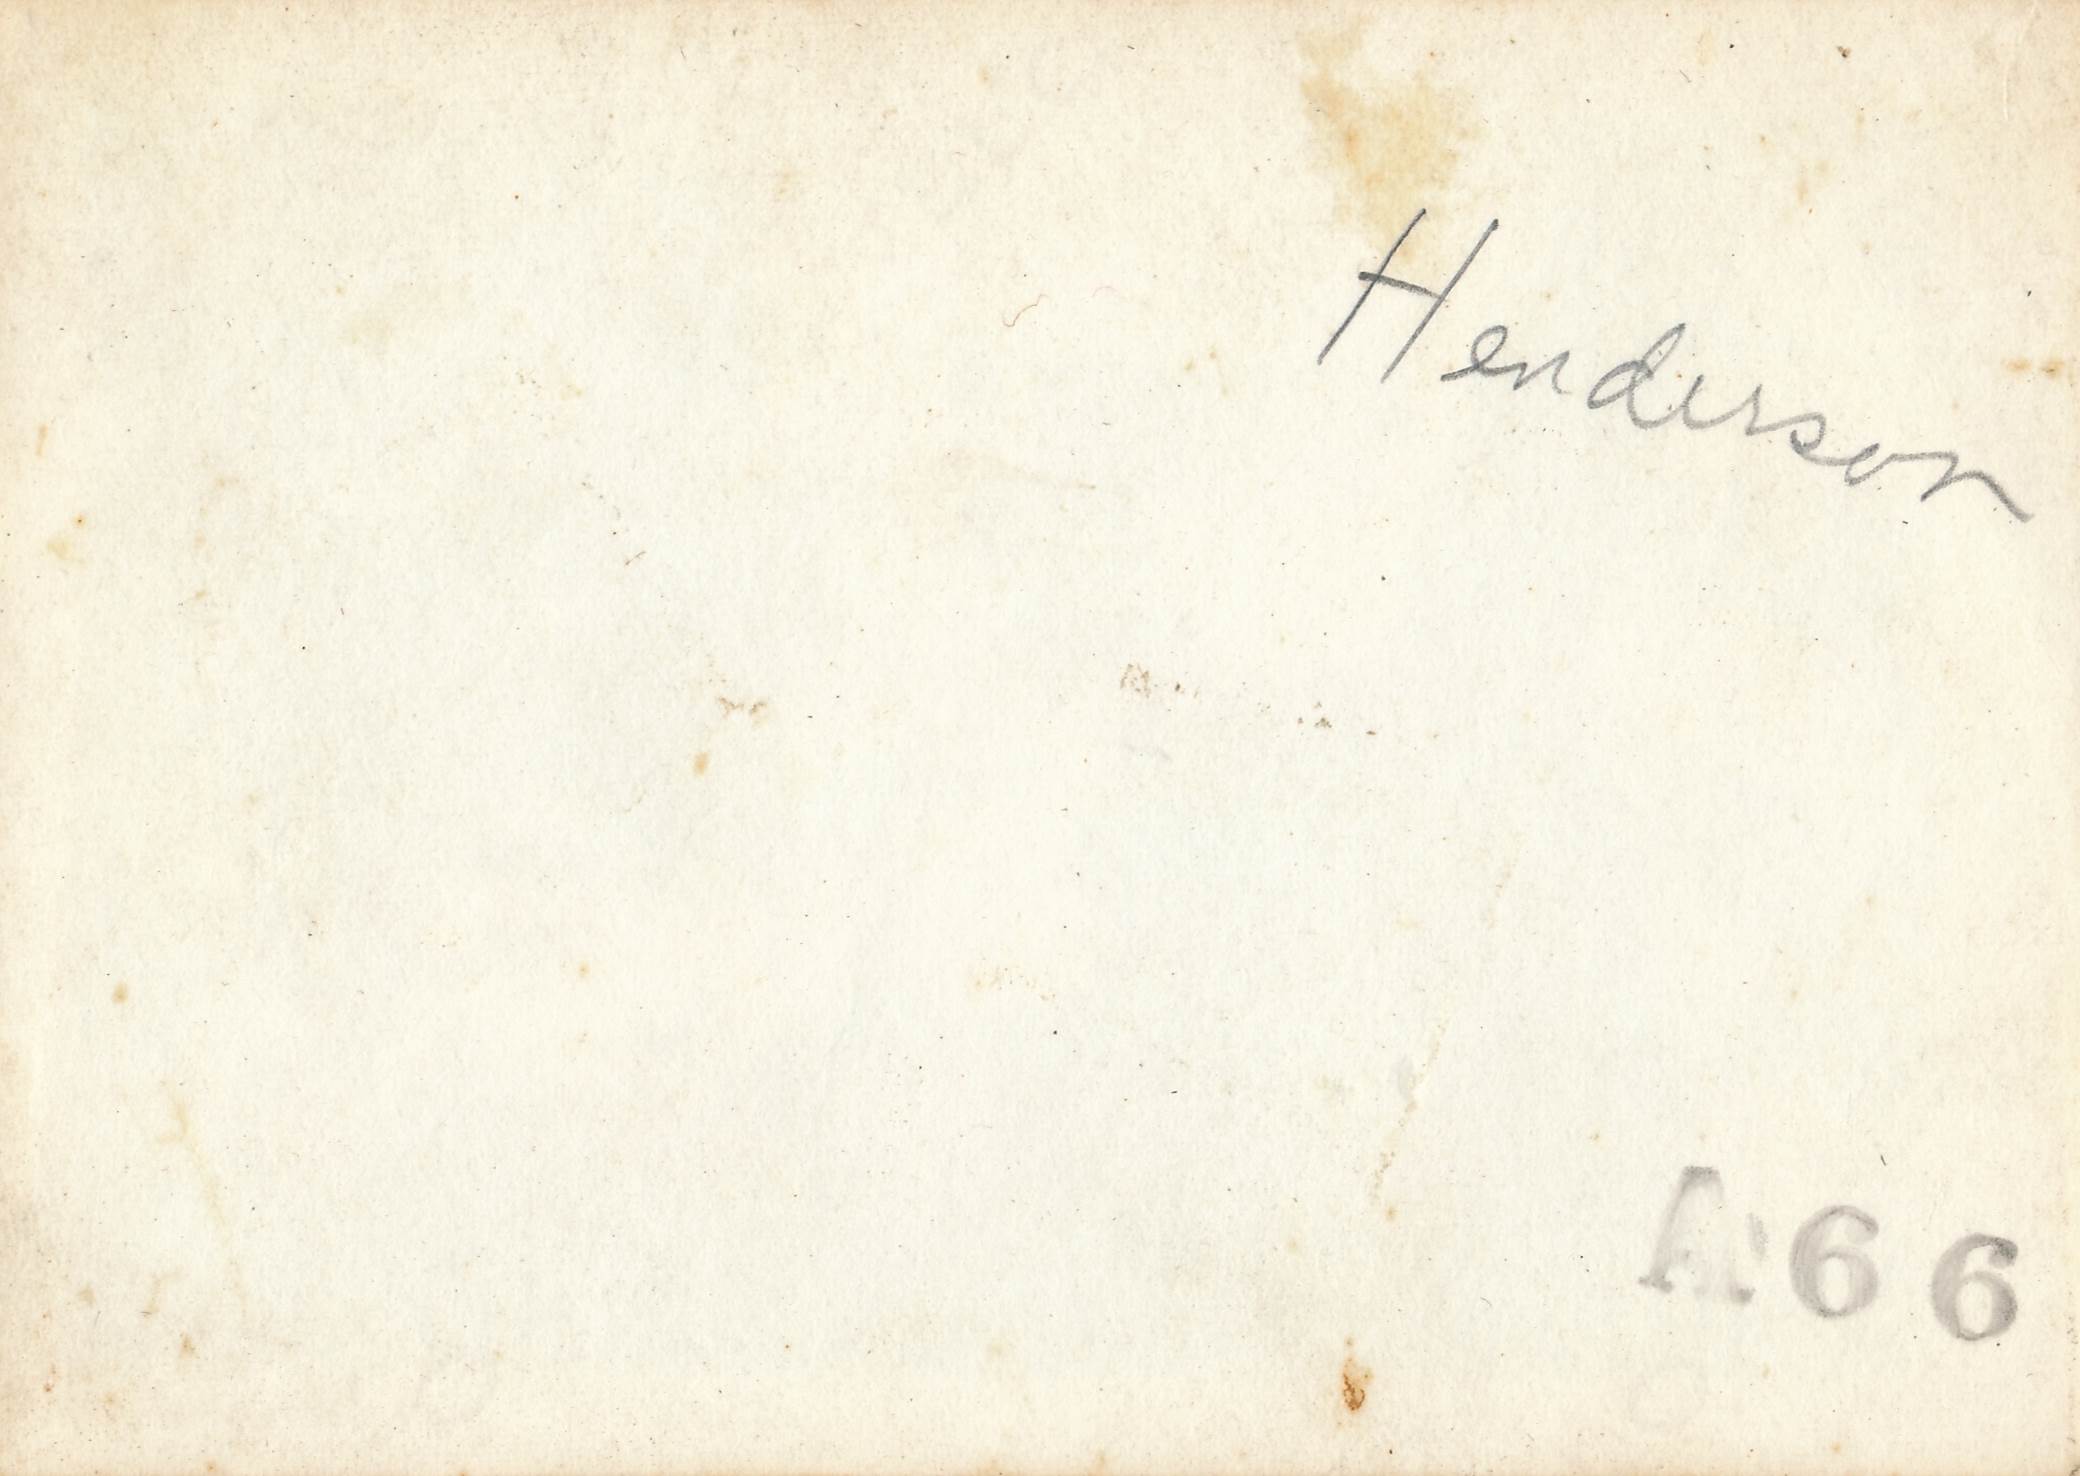 Henderson
A66